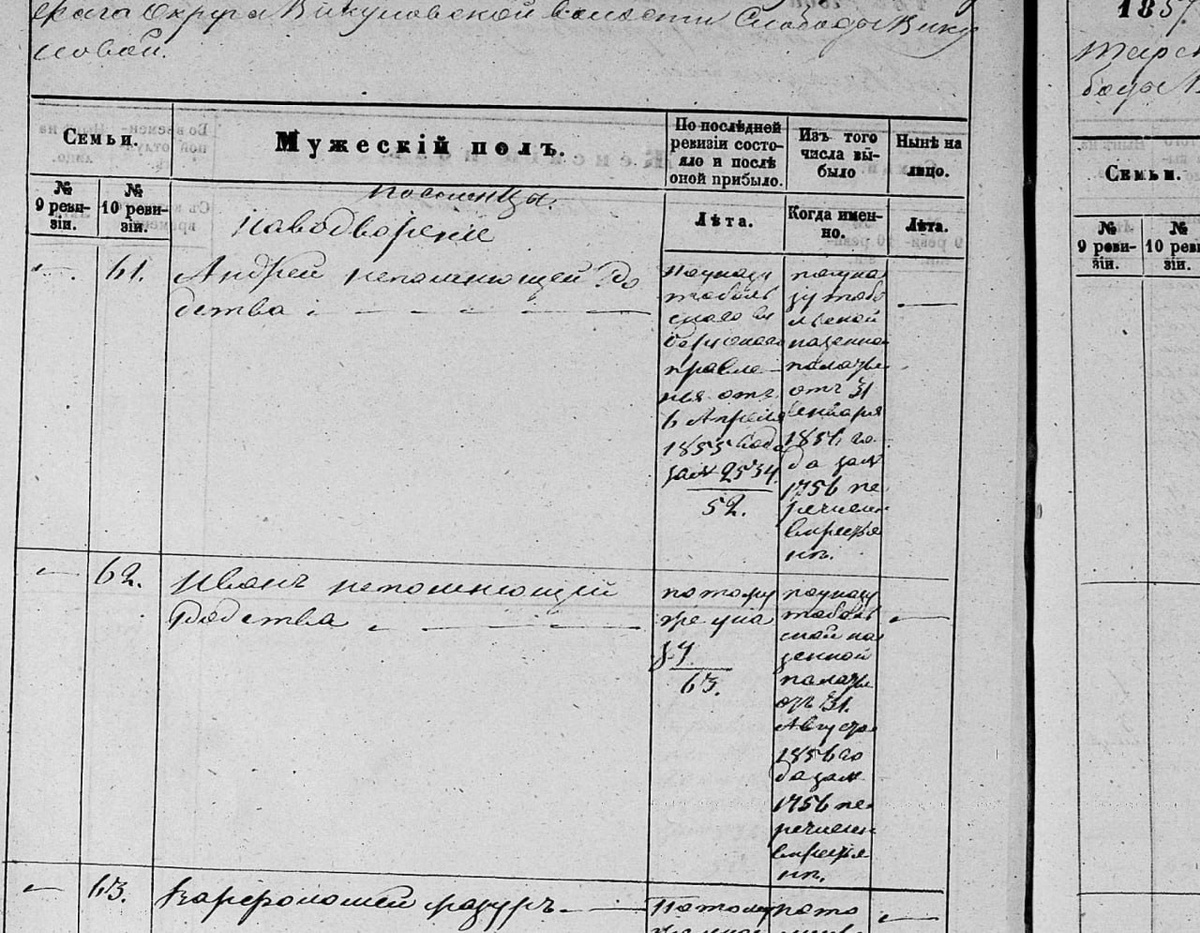 Округа Викуловской волости Слободы Вику
ловой.
1857
Семьи.
Мужескій полъ.
По послѣдней
ревизіи состо-
яло и послѣ
оной прибыло.
Изъ того
числа вы-
было
Нынѣ на
лицо.
№
9 реви-
зіи.
№
10 реви-
зіи.
Лѣта.
Когда имен-
но.
Лѣта.
поселенцы.
наводвореніе
61.
Андрей непомнющей Ро
дства
поуказу
тоболь
скаго гу
бернскаго
правле
нія отъ
6 Апреля
1855 года
за № 2534.
52.
поука
зу тобо
льской
казенно
палаты
отъ 31
Генваря
1856 го
да за №
1756 пе
речислен
вкрестья
нѣ.
62.
Иванъ непомнющій
Родства
потому
же ука
зу
63.
поуказу
тоболь
ской ка
зенной
палаты
отъ 31.
Августа
1856 го
да за №
1756 пе
речислен
вкрестья
нѣ.
63.
Варфоломей
Потому
пото
Семьи.
№
9 реви-
зіи.
№
10 реви-
зіи.